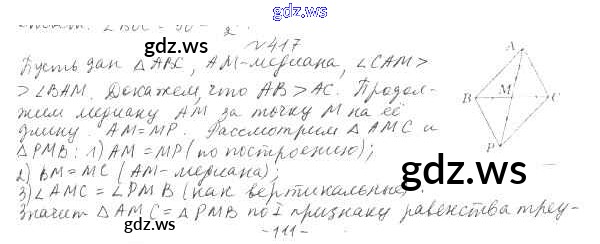 gdz.ws
№417
Пусть дан △ABC, AM-медиана, ∠CAM>
>∠BAM. Докажем, что AB>AC. Продол-
жим медиану AM за точку M на её
длину. AM=MP. Рассмотрим △AMC и
△PMB: 1) AM=MP (по построению);
2) BM=MC (AM-медиана);
3) ∠AMC=∠PMB (как вертикальные).
Значит △AMC=△PMB по I признаку равенства треу-
-111-
A
B
M
C
P
gdz.ws
gdz.ws
gdz.ws